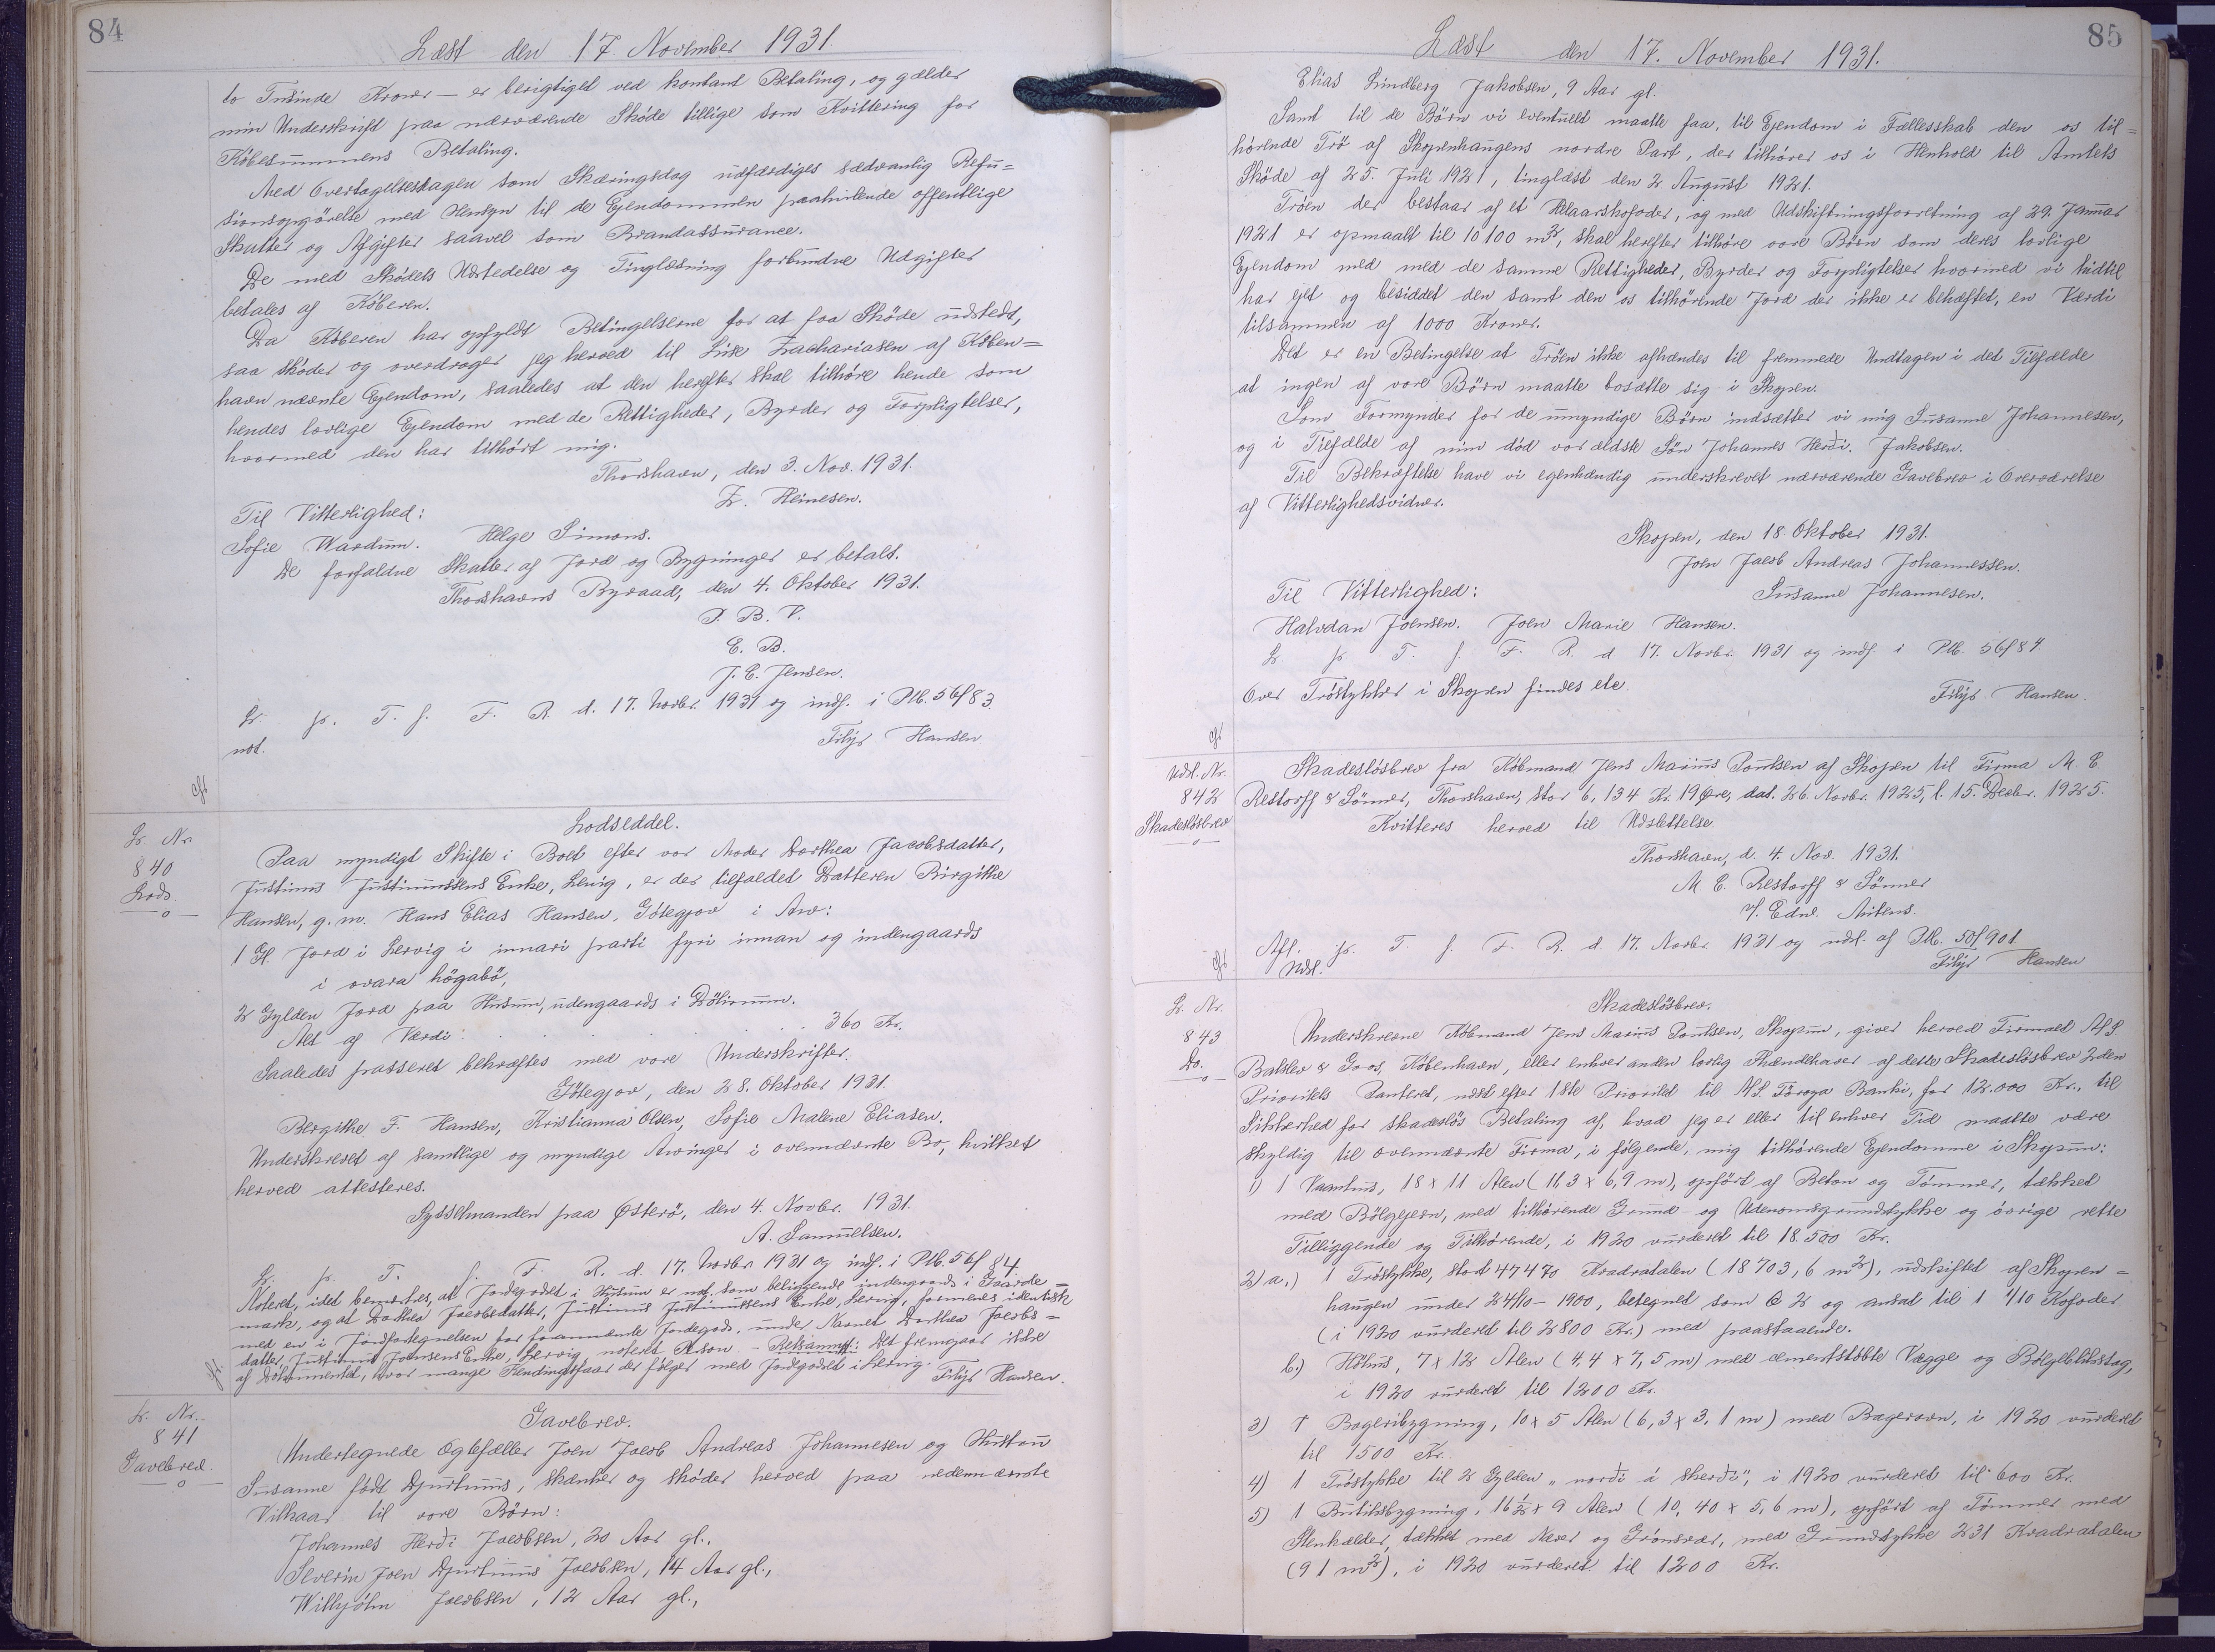 84
Læst den 17 November 1931.
to Tusinde Kroner — er berigtiget ved kontant Betaling, og gælder
min Underskrift paa nærværende Skøde tillige som Kvittering for
Købesummens Betaling.
Med Overtagelsesdagen som Skæringsdag udfærdiges sædvanlig Refu=
sionsopgørelse med Hensyn til de Ejendommen paahvilende offentlige
Skatter og Afgifter saavel som Brandassurance.
De med Skødets Udstedelse og Tinglæsning forbundne Udgifter
betales af Køberen.
Da Køberen har opfyldt Betingelserne for at faa Skøde udstedt,
saa skøder og overdrager jeg herved til Zachariasen af Køben=
havn nævnte Ejendom, saaledes at den herefter skal tilhøre hende som
hendes lovlige Ejendom med de Rettigheder, Byrder og Forpligtelser,
hvormed den har tilhørt mig.
Thorshavn, den 3. Nov. 1931.
Z. Heinesen.
Til Vitterlighed:
Sofie Wardum. Helge Simons.
De forfaldne Skatter af Jord og Bygninger er betalt.
Thorshavns Byraad, den 4. Oktober 1931.
P. B. V.
E. B.
J. C. Jensen.
Lr. p. T. f. F. R. d. 17. Novbr. 1931 og indf. i Pb. 56f83.
not.
Filip Hansen
Lr. Nr.
840
Lods.
Lodseddel.
Paa myndigt Skifte i Boet efter vor Moder Dorthea Jacobsdatter,
Justinus Justinussens Enke, Lervig, er der tilfaldet Datteren Birgithe
Hansen, g. m. Hans Elias Hansen, Götegjov i Arv:
1 Gl. Jord i Lervig i innari parti fyri innan og indengaards
i ovara högabø,
2 Gylden Jord paa Husum, udengaards i Dølinum.
Alt af Værdi . . . . . 360 Kr.
Saaledes passeret bekræftes med vore Underskrifter.
Götegjov, den 28. Oktober 1931.
Bergithe F. Hansen, Kristianna Olsen, Sofie Malene Eliasen.
Underskrevet af samtlige og myndige Arvinger i ovennævnte Bo, hvilket
herved attesteres.
Sysselmanden paa Østerø, den 4. Novbr. 1931.
A. Samuelsen.
Lr. p. T. f. F. R. d. 17. Novbr 1931 og indf. i Pb. 56f 84.
Noteret, idet bemærkes, at Jordegodset i Husum er not. som beliggende indengaards i Gaarde=
mark, og at Dorthea Jacobsdatter, Justinus Justinussens Enke, Lervig, formenes identisk
med en i Jordfortegnelsen for forannævnte Jordegods, under Navnet Dorthea Jacobs=
datter, Justinus Joensens Enke, Lervig, noteret Person. – Retsanm.: Det fremgaar ikke
af Dokumentet, hvor mange Hændingsfaar der følger med Jordegodset i Lervig. Filip Hansen.
Lr. Nr.
841
Gavebrev.
Gavebrev.
Undertegnede Ægtefæller Joen Jacob Andreas Johannesen og Hustru
Susanne født Djurhuus, skænker og skøder herved paa nedennævnte
Vilkaar til vore Børn:
Johannes Herði Jacobsen, 20 Aar gl.,
Severin Joen Djurhuus Jacobsen, 14 Aar gl.,
Wilhjólm Jacobsen, 12 Aar gl.,
85
Læst den 17. November 1931.
Elias Lindberg Jakobsen, 9 Aar gl.
Samt til de Børn vi eventuelt maatte faa, til Ejendom i Fællesskab den os til=
hørende Trö af Skopenhaugens nordre Part, der tilhører os i Henhold til Amtets
Skøde af 25. Juli 1921, tinglæst den 2. August 1921.
Trøen der bestaar af et Helaarskofoder, og med Udskiftningsforretning af 29. Januar
1921 er opmaalt til 10100 m², skal herefter tilhøre vore Børn som deres lovlige
Ejendom med med de samme Rettigheder, Byrder og Forpligtelser hvormed vi hidtil
har ejet og besiddet den samt den os tilhørende Jord der ikke er behæftet, en Værdi
tilsammen af 1000 Kroner.
Det er en Betingelse at Trøen ikke afhændes til fremmede Undtagen i det Tilfælde
at ingen af vore Børn maatte bosætte sig i Skopen.
Som Formynder for de umyndige Børn indsætter vi mig Susanne Johannesen,
og i Tilfælde af min død vor ældste Søn Johannes Herði. Jakobsen.
Til Bekræftelse have vi egenhændig underskrevet nærværende Gavebrev i Overværelse
af Vitterlighedsvidner.
Skopen, den 18. Oktober 1931.
Joen Jacob Andreas Johannessen.
Til Vitterlighed: Susanne Johannesen.
Halvdan Joensen. Joen Marie Hansen.
Lr. p. T. f. F. R. d. 17. Novbr. 1931 og indf. i Pb. 56f84.
Over Trøstykker i Skopen findes ele
Filip Hansen.
Udsl. Nr.
842
Skadesløsbrev
Skadesløsbrev fra Købmand Jens Marius Poulsen af Skopen til Firma M. C.
Restorff & Sønner, Thorshavn, stor 6,134 Kr. 19 Øre, dat. 26. Novbr. 1925, l. 15. Decbr. 1925.
Kvitteres herved til Udslettelse.
Thorshavn, d. 4. Nov. 1931.
M. C. Restorff & Sønner
v/. Edw. Mitens.
Afl. p. T. f. F. R. d. 17. Novbr. 1931 og udsl. af Pb. 50f901
Udsl.
Filip Hansen
Lr. Nr.
843
Do.
Skadesløsbrev.
Underskrevne Købmand Jens Marius Poulsen, Skopun, giver herved Firmaet A/S
Balslev & Goos, København, eller enhver anden lovlig Ihændehaver af dette Skadesløsbrev 2den
Prioritets Panteret, næst efter 1ste Prioritet til A/S. Föroya Banki, for 12.000 Kr., til
Sikkerhed for skadesløs Betaling af, hvad jeg er eller til enhver Tid maatte være
skyldig til ovennævnte Firma, i følgende, mig tilhørende Ejendomme i Skopun:
1) 1 Vaanhus, 18 x 11 Alen (11,3 x 6,9 m), opført af Beton og Tömmer, tækket
med Bölgejern, med tilhørende Grund- og Udenomsgrundstykke og övrige rette
Tilliggende og Tilhørende, i 1920 vurderet til 18.500 Kr.
2) a.) 1 Trøstykke, stort 47470 Kvadratalen (18703,6 m²), udskiftet af Skopen=
haugen under 24/10 – 1900, betegnet som C 2 og ansat til 1 1/10 Kofoder
(i 1920 vurderet til 2800 Kr.) med paastaaende.
b.) Höhus, 7 x 12 Alen (4,4 x 7,5 m) med cementstøbte Vægge og Bölgebliktag,
i 1920 vurderet til 1200 Kr.
3) 1 Bageribygning, 10 x 5 Alen (6,3 x 3,1 m) med Bagerovn, i 1920 vurderet
til 1500 Kr.
4) 1 Trøstykke til 2 Gylden „norði á skerði“, i 1920 vurderet til 600 Kr.
5) 1 Butiksbygning, 16½ x 9 Alen (10,40 x 5,6 m), opført af Tömmer med
Stenkælder, tækket med Næver og Grønsvær, med Grundstykke 231 Kvadratalen
(91 m²), i 1920 vurderet til 1200 Kr.